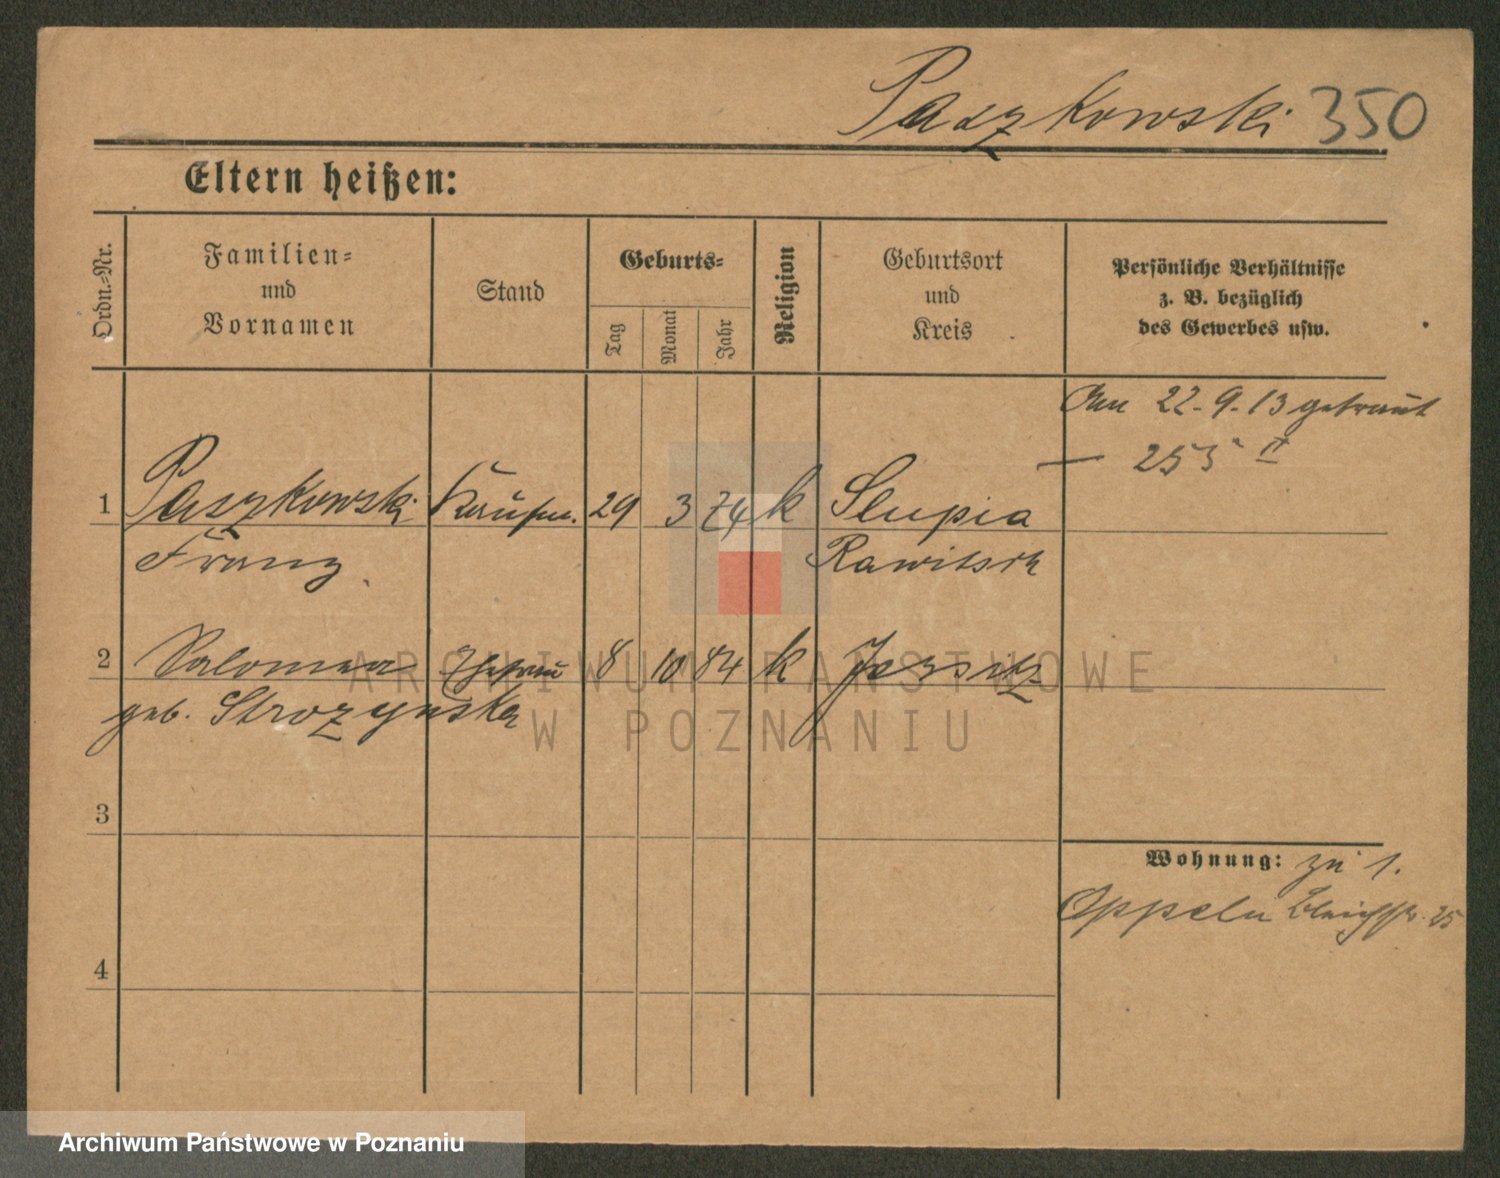 Paszkowski 350
Eltern heißen:
Ordn.-Nr.
Familien-
und
Vornamen
Stand
Geburts-
Tag
Monat
Jahr
Religion
Geburtsort
und
Kreis
Persönliche Verhältnisse
z. B. bezüglich
des Gewerbes usw.
Am 22.9.13 getraut
— 255
1 Paszkowski Kaufm. 29 3 74 k Slupia
Franz. Rawitsch
2 Salomea Ehefrau 8 10 84 k Jersitz
geb. Strozynska
3
4
Wohnung: zu 1.
Oppeln 25
ARCHIWUM PAŃSTWOWE
W POZNANIU
Archiwum Państwowe w Poznaniu